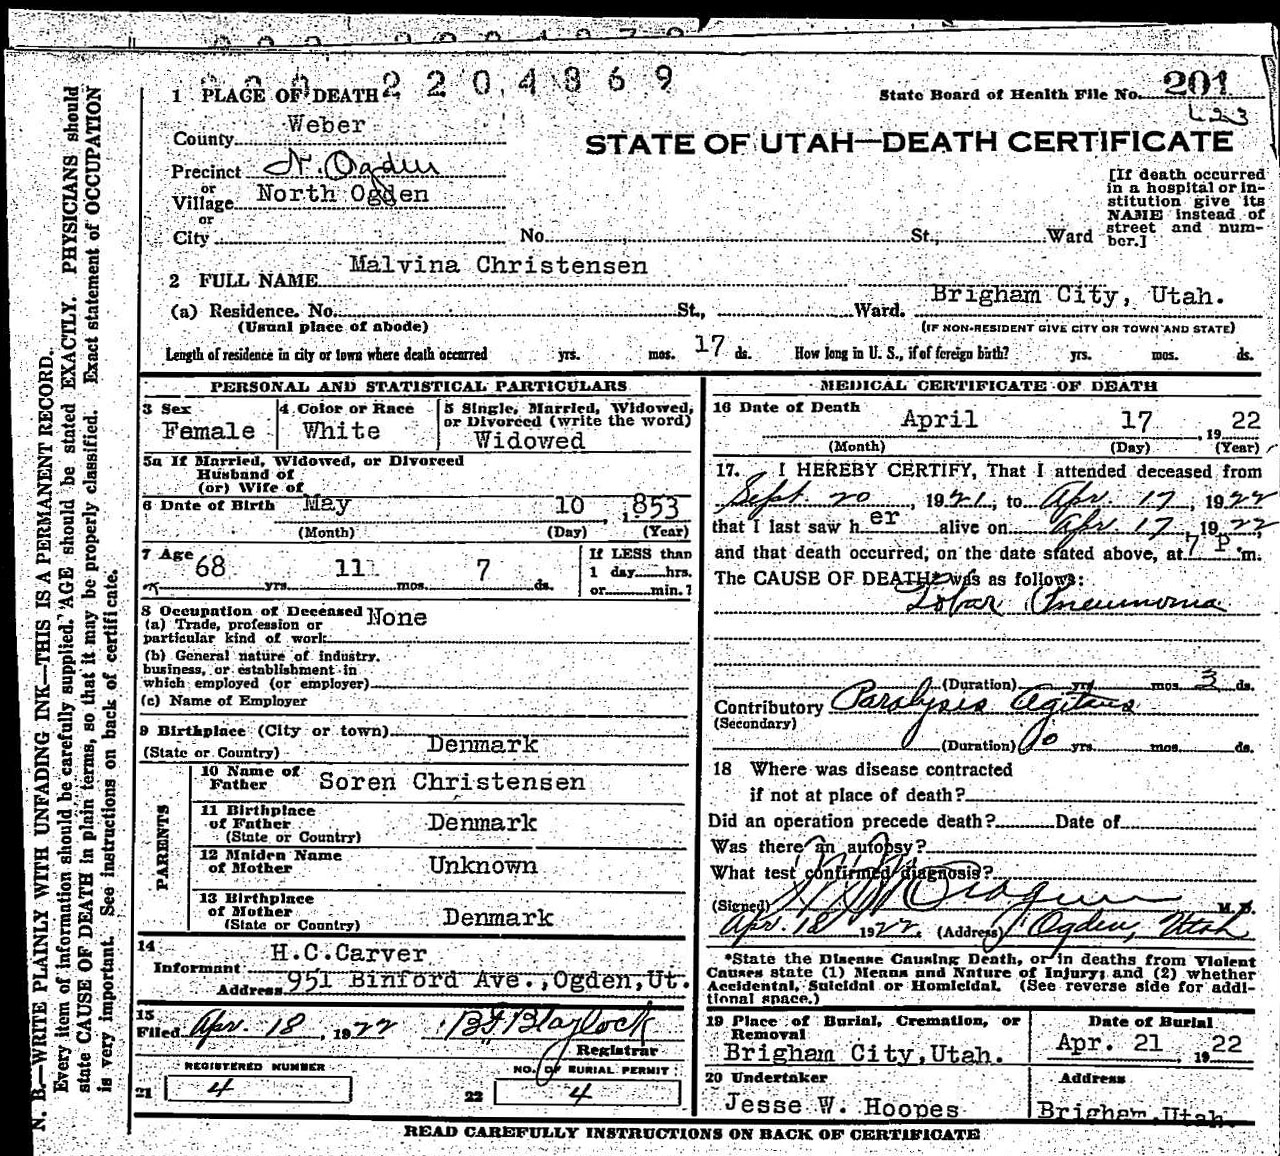 2204869
1 PLACE OF DEATH
State Board of Health File No. 201
County Weber
STATE OF UTAH—DEATH CERTIFICATE
Precinct N. Ogden
or
Village North Ogden
or
City No. St., Ward
[If death occurred
in a hospital or in-
stitution give its
NAME instead of
street and num-
ber.]
2 FULL NAME Malvina Christensen
(a) Residence. No. St., Ward. Brigham City, Utah.
(Usual place of abode) (IF NON-RESIDENT GIVE CITY OR TOWN AND STATE)
Length of residence in city or town where death occurred yrs. mos. 17 ds. How long in U. S., if of foreign birth? yrs. mos. ds.
PERSONAL AND STATISTICAL PARTICULARS
3 Sex
Female
4 Color or Race
White
5 Single, Married, Widowed,
or Divorced (write the word)
Widowed
5a If Married, Widowed, or Divorced
Husband of
(or) Wife of
6 Date of Birth May 10, 1853
(Month) (Day) (Year)
7 Age
68 yrs. 11 mos. 7 ds.
If LESS than
1 day......hrs.
or......min.?
8 Occupation of Deceased None
(a) Trade, profession or
particular kind of work
(b) General nature of industry,
business, or establishment in
which employed (or employer)
(c) Name of Employer
9 Birthplace (City or town)
(State or Country) Denmark
PARENTS
10 Name of
Father Soren Christensen
11 Birthplace
of Father
(State or Country) Denmark
12 Maiden Name
of Mother Unknown
13 Birthplace
of Mother
(State or Country) Denmark
14
Informant H.C.Carver
Address 951 Binford Ave.,Ogden,Ut.
15
Filed Apr. 18, 1922 B F Blaylock
Registrar
REGISTERED NUMBER
21 4
NO. OF BURIAL PERMIT
22 4
MEDICAL CERTIFICATE OF DEATH
16 Date of Death April 17, 1922
(Month) (Day) (Year)
17. I HEREBY CERTIFY, That I attended deceased from
Sept. 20, 1921, to Apr. 17, 1922
that I last saw her alive on Apr. 17, 1922,
and that death occurred, on the date stated above, at 7 P.m.
The CAUSE OF DEATH* was as follows:
Lobar Pneumonia
(Duration) yrs. mos. 3 ds.
Contributory Paralysis Agitans
(Secondary)
(Duration) 10 yrs. mos. ds.
18 Where was disease contracted
if not at place of death?
Did an operation precede death? Date of
Was there an autopsy?
What test confirmed diagnosis?
(Signed) M. D.
Apr. 18 1922 (Address) Ogden, Utah
*State the Disease Causing Death, or in deaths from Violent
Causes state (1) Means and Nature of Injury; and (2) whether
Accidental, Suicidal or Homicidal. (See reverse side for addi-
tional space.)
19 Place of Burial, Cremation, or
Removal
Brigham City,Utah.
Date of Burial
Apr. 21, 1922
20 Undertaker
Jesse W. Hoopes
Address
Brigham,Utah.
READ CAREFULLY INSTRUCTIONS ON BACK OF CERTIFICATE
N. B.—WRITE PLAINLY WITH UNFADING INK—THIS IS A PERMANENT RECORD.
Every item of information should be carefully supplied. AGE should be stated EXACTLY. PHYSICIANS should
state CAUSE OF DEATH in plain terms, so that it may be properly classified. Exact statement of OCCUPATION
is very important. See instructions on back of certificate.